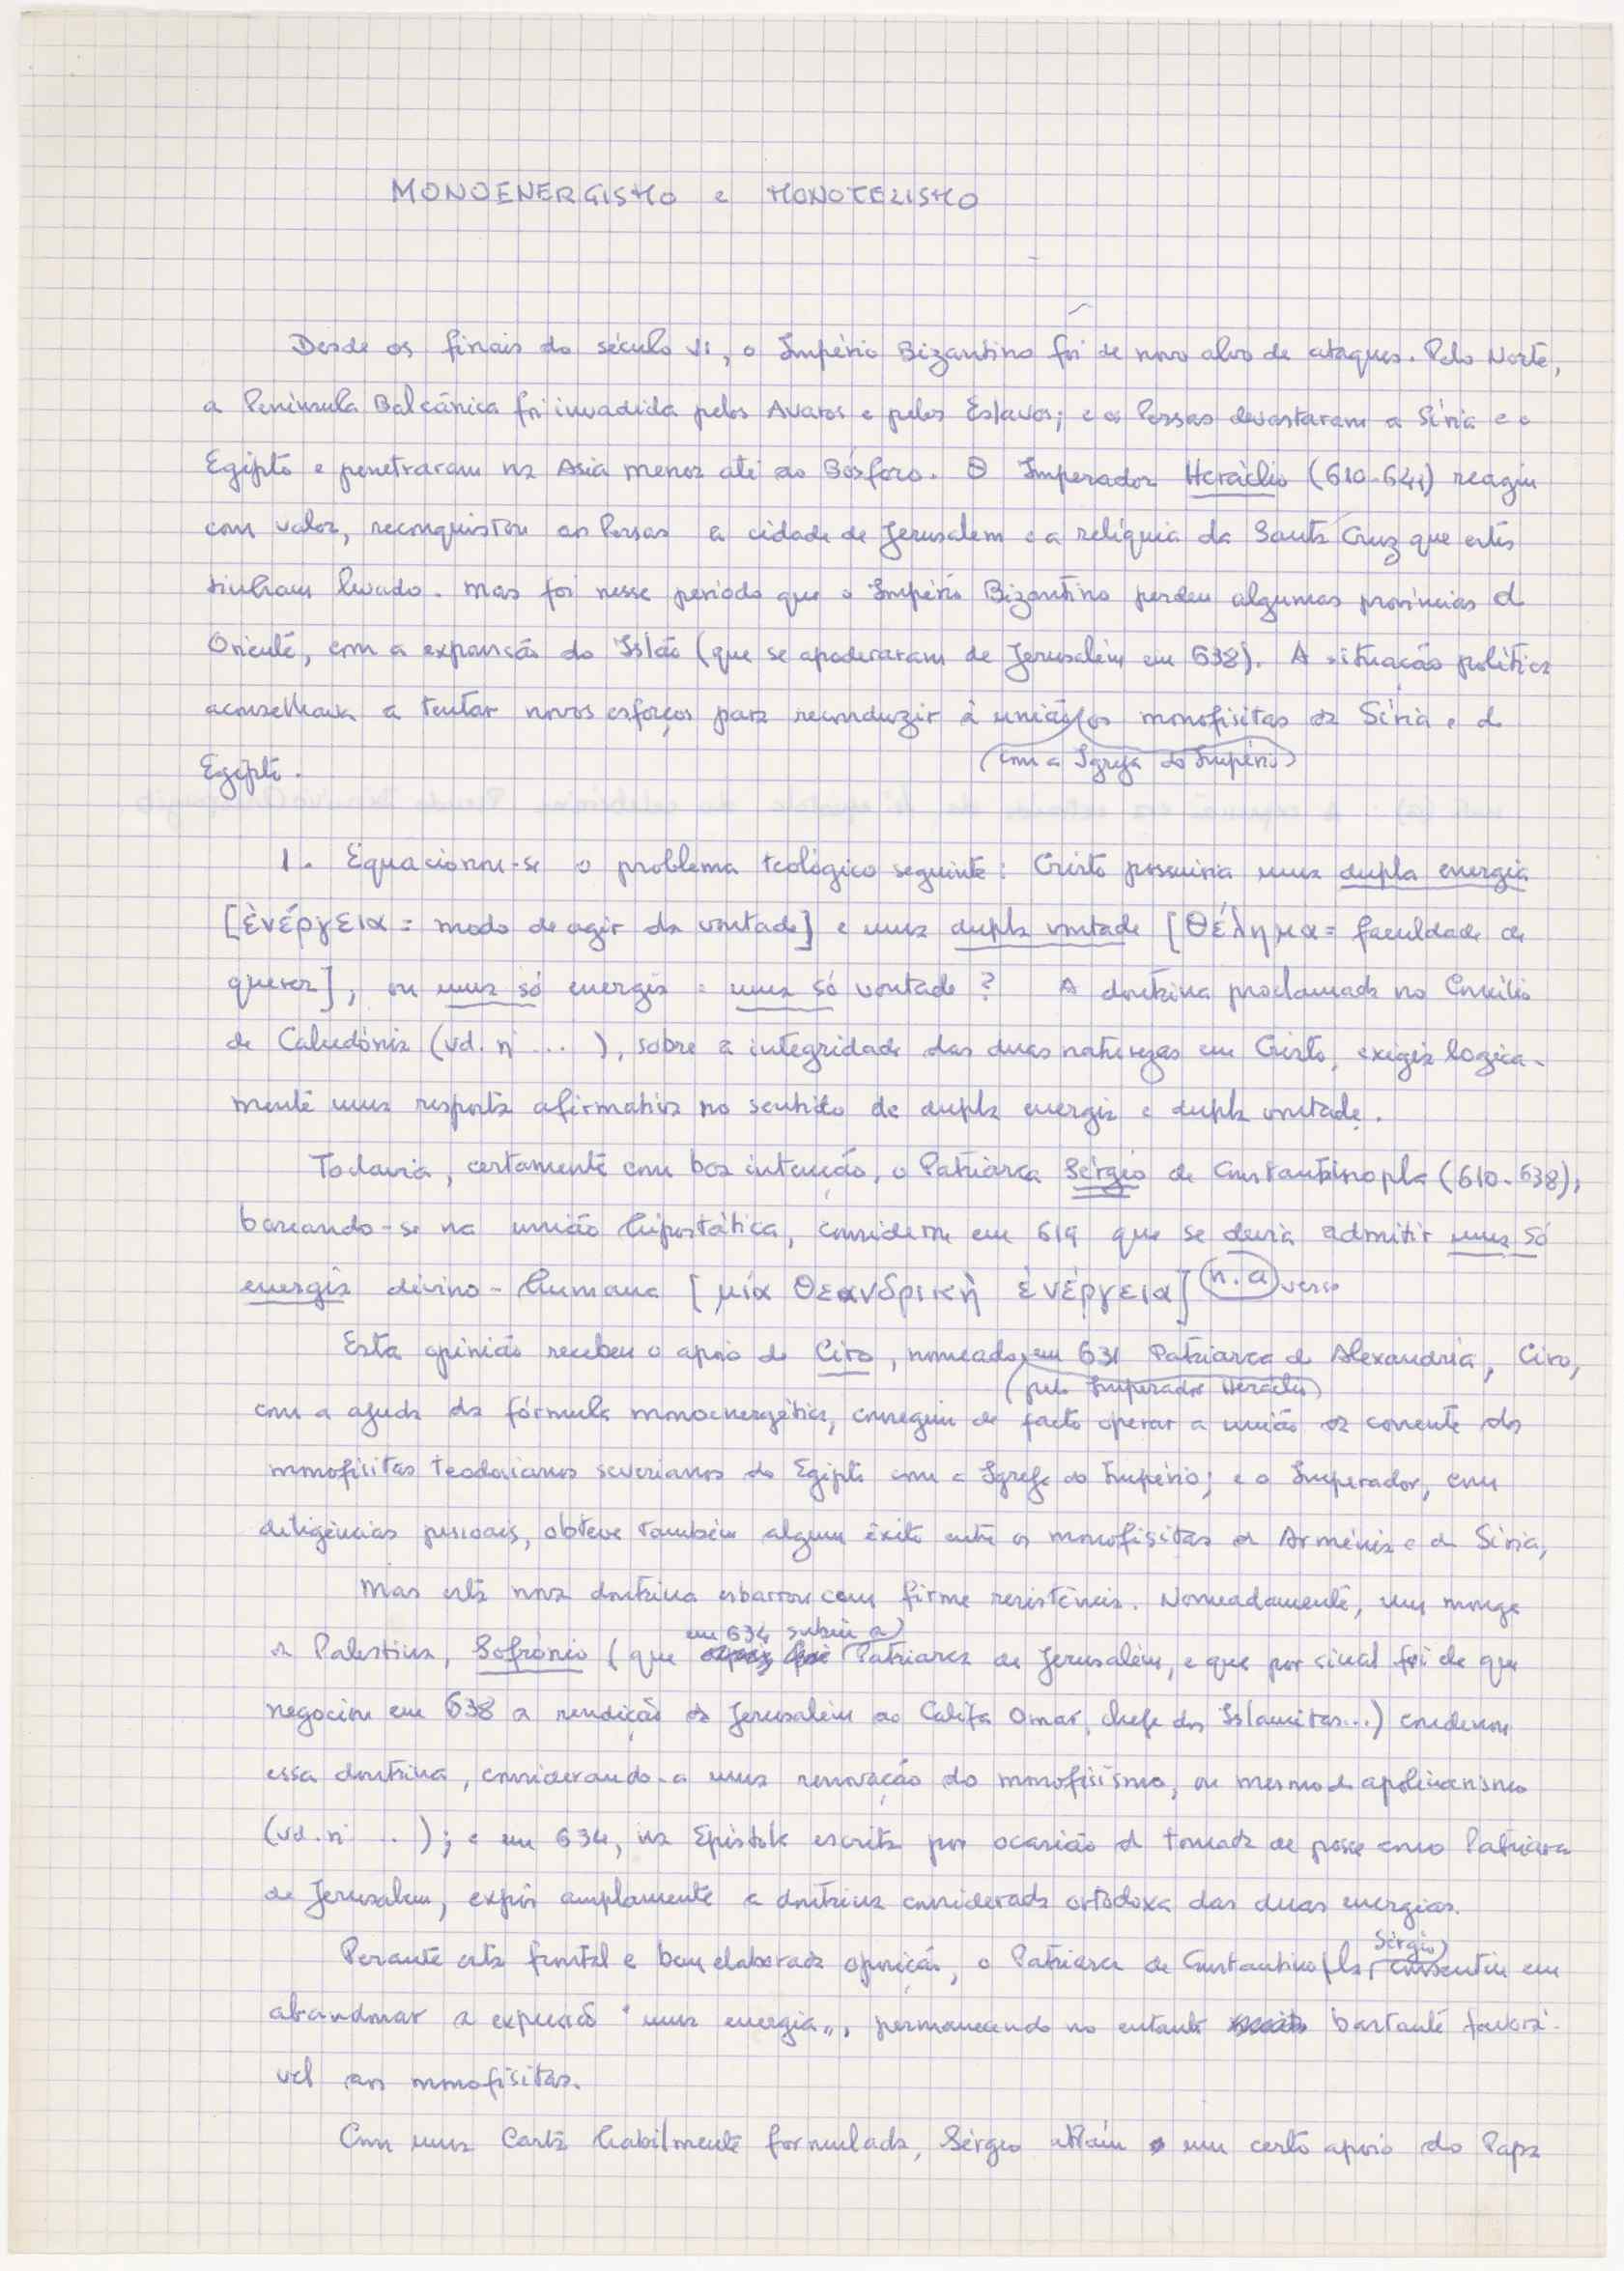 MONOENERGISMO e MONOTELISMO
Desde os finais do século VI, o Império Bizantino foi de novo alvo de ataques. Pelo Norte,
a Península Balcânica foi invadida pelos Avaros e pelos Eslavos; e os Persas devastaram a Síria e o
Egipto e penetraram na Asia menor até ao Bósforo. O Imperador Heráclio (610-641) reagiu
com valor, reconquistou aos Persas a cidade de Jerusalem e a relíquia da Santa Cruz que estes
tinham levado. Mas foi nesse período que o Império Bizantino perdeu algumas províncias do
Oriente, com a expansão do Islão (que se apoderaram de Jerusalém em 638). A situação política
aconselhava a tentar novos esforços para reconduzir à união os monofisitas da Síria e do
(com a Igreja do Império)
Egipto.
1. Equacionou-se o problema teológico seguinte: Cristo possuiria uma dupla energia
[ἐνέργεια = modo de agir da vontade] e uma dupla vontade [θέλημα = faculdade de
querer], ou uma só energia e uma só vontade? A doutrina proclamada no Concílio
de Calcedónia (vd. nº ... ), sobre a integridade das duas naturezas em Cristo, exigia logica-
mente uma resposta afirmativa no sentido de dupla energia e dupla vontade.
Todavia, certamente com boa intenção, o Patriarca Sérgio de Constantinopla (610-638),
baseando-se na união hipostática, considerou em 619 que se devia admitir uma só
energia divino-humana [μία θεανδρικὴ ἐνέργεια] (n. a) verso
Esta opinião recebeu o apoio de Ciro, nomeado em 631 Patriarca de Alexandria, Ciro,
(pelo Imperador Heraclio)
com a ajuda da fórmula monoenergética, conseguiu de facto operar a união da corrente dos
monofisitas teodosianos severianos do Egipto com a Igreja do Império; e o Imperador, com
diligências pessoais, obteve também algum êxito entre os monofisitas da Arménia e da Síria,
Mas esta nova doutrina esbarrou com firme resistência. Nomeadamente, um monge
em 634 subiu a)
da Palestina, Sofrónio (que Patriarca de Jerusalém, e que por sinal foi ele que
negociou em 638 a rendição de Jerusalém ao Califa Omar, chefe dos Islamitas...) condenou
essa doutrina, considerando-a uma renovação do monofisismo, ou mesmo do apolinarismo
(vd. nº .. ); e em 634, na Epistola escrita por ocasião da tomada de posse como Patriarca
de Jerusalem, expôs amplamente a doutrina considerada ortodoxa das duas energias.
Perante esta frontal e bem elaborada oposição, o Patriarca de Constantinopla, consentiu em
Sérgio)
abandonar a expressão "uma energia", permanecendo no entanto bastante favorá-
vel aos monofisitas.
Com uma Carta habilmente formulada, Sérgio atraíu um certo apoio do Papa